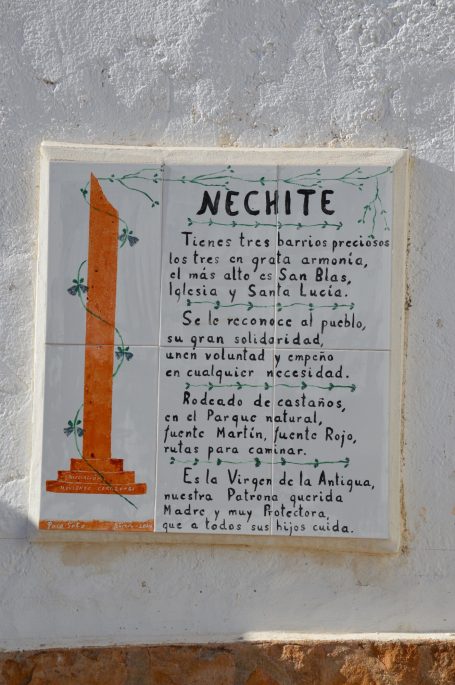 NECHITE
Tienes tres barrios preciosos
los tres en grata armonía,
el más alto es San Blas,
Iglesia y Santa Lucía.
Se le reconoce al pueblo,
su gran solidaridad,
unen voluntad y empeño
en cualquier necesidad.
Rodeado de castaños,
en el Parque natural,
fuente Martín, fuente Rojo,
rutas para caminar.
Es la Virgen de la Antigua,
nuestra Patrona querida
Madre y muy Protectora,
que a todos sus hijos cuida.
ASOCIACIÓN
Paco Soto